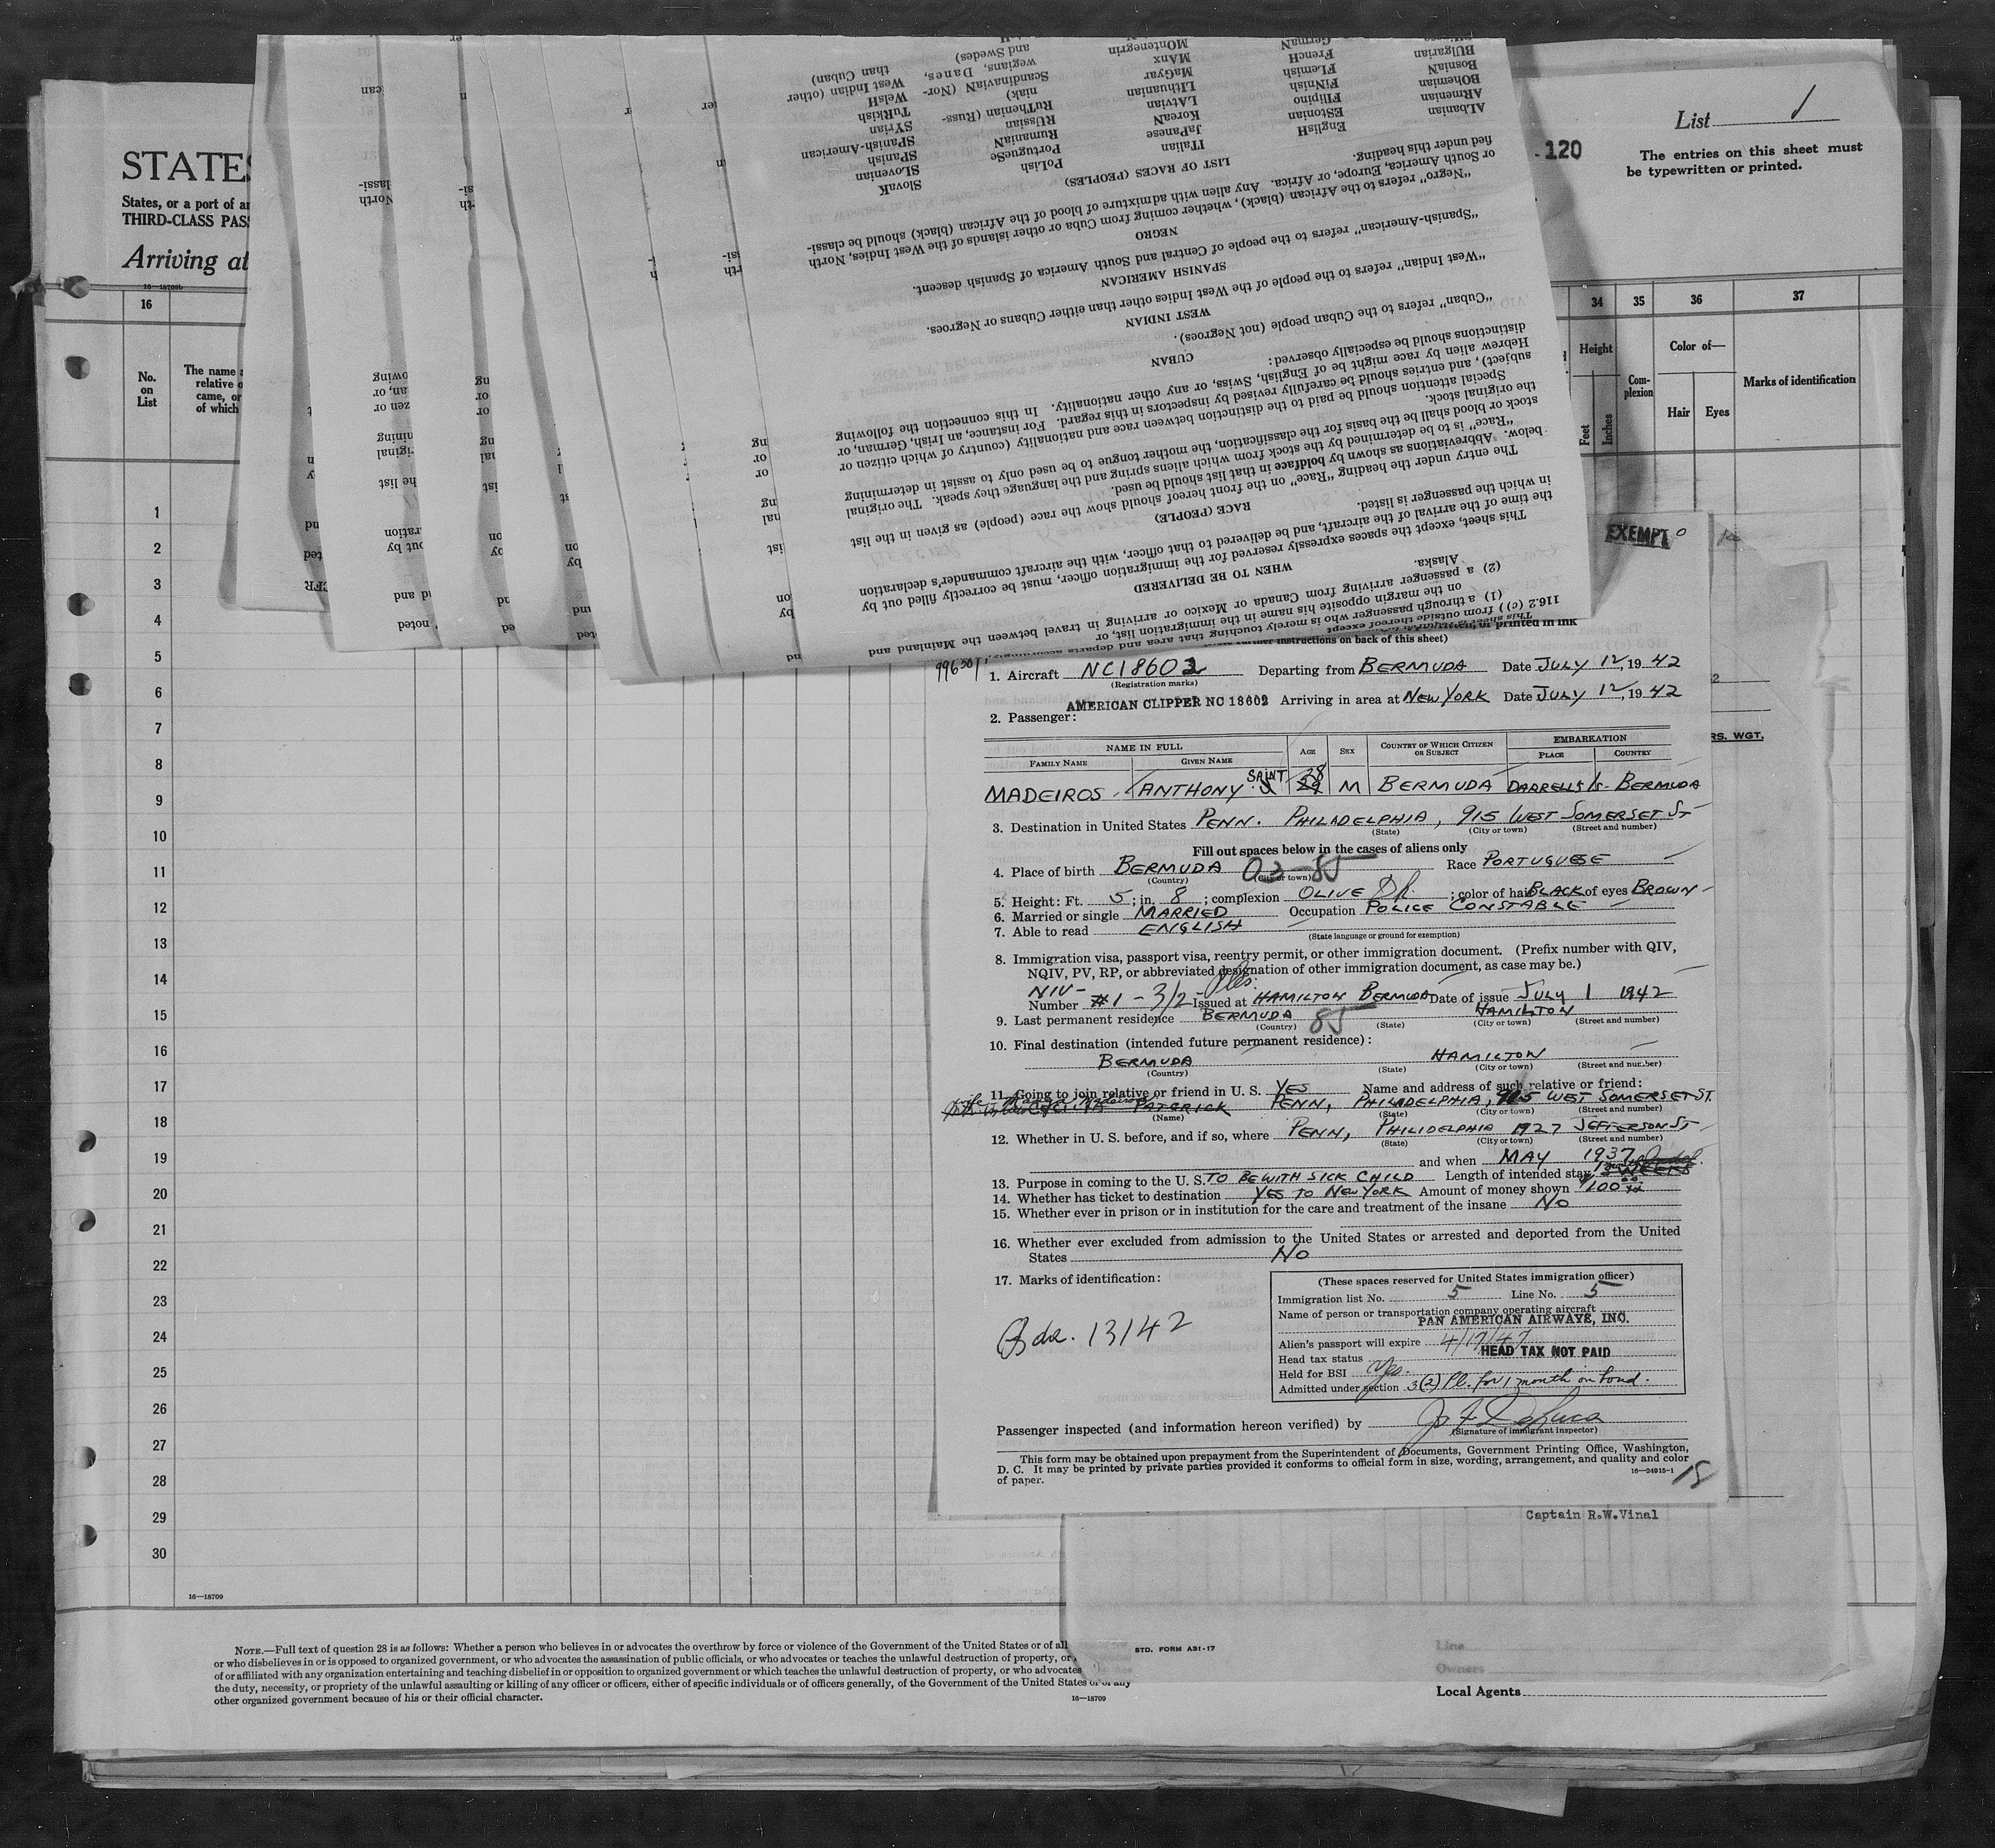 STATES
States, or a port of an
THIRD-CLASS PAS
Arriving at
16—18709b
16
No.
on
List
The name a
relative o
came, or
of which
1
2
3
4
5
6
7
8
9
10
11
12
13
14
15
16
17
18
19
20
21
22
23
24
25
26
27
28
29
30
16—18709
NOTE.—Full text of question 28 is as follows: Whether a person who believes in or advocates the overthrow by force or violence of the Government of the United States or of all
or who disbelieves in or is opposed to organized government, or who advocates the assassination of public officials, or who advocates or teaches the unlawful destruction of property, or
of or affiliated with any organization entertaining and teaching disbelief in or opposition to organized government or which teaches the unlawful destruction of property, or who advocates
the duty, necessity, or propriety of the unlawful assaulting or killing of any officer or officers, either of specific individuals or of officers generally, of the Government of the United States or of any
other organized government because of his or their official character.
16—18709
List
120
The entries on this sheet must
be typewritten or printed.
34
35
36
37
Height
Feet
Inches
Com-
plexion
Color of—
Hair
Eyes
Marks of identification
EXEMPT
RS. WGT.
(1) a through passenger who is merely touching that area and departs
on the margin opposite his name in the immigration list, or
(2) a passenger arriving from Canada or Mexico or arriving in travel between the Mainland and
Alaska.
WHEN TO BE DELIVERED
This sheet, except the spaces expressly reserved for the immigration officer, must be correctly filled out by
the time of the arrival of the aircraft, and be delivered to that officer, with the aircraft commander's declaration
in which the passenger is listed.
RACE (PEOPLE)
The entry under the heading "Race" on the front hereof should show the race (people) as given in the list
below. Abbreviations as shown by boldface in that list should be used.
"Race" is to be determined by the stock from which aliens spring and the language they speak. The original
stock or blood shall be the basis for the classification, the mother tongue to be used only to assist in determining
the original stock.
Special attention should be paid to the distinction between race and nationality (country of which citizen or
subject), and entries should be carefully revised by inspectors in this regard. For instance, an Irish, German, or
Hebrew alien by race might be of English, Swiss, or any other nationality. In this connection the following
distinctions should be especially observed:
CUBAN
"Cuban" refers to the Cuban people (not Negroes).
WEST INDIAN
"West Indian" refers to the people of the West Indies other than either Cubans or Negroes.
SPANISH AMERICAN
"Spanish-American" refers to the people of Central and South America of Spanish descent.
NEGRO
"Negro" refers to the African (black), whether coming from Cuba or other islands of the West Indies, North
or South America, Europe, or Africa. Any alien with admixture of blood of the African (black) should be classi-
fied under this heading.
LIST OF RACES (PEOPLES)
ALbanian
ARmenian
BOhemian
BosniaN
BUlgarian
EnglisH
EStonian
FIlipino
FiNnish
FLemish
FrencH
GermaN
ITalian
JaPanese
KoreaN
LAtvian
LIthuanian
MaGyar
MAnx
MOntenegrin
PoLish
PortugueSe
RumaniaN
RUssian
RuThenian (Russ-
niak)
ScandinaviaN (Nor-
wegians, Danes,
and Swedes)
SlovaK
SLOvenian
SPAnish
SPanisH-American
SYrian
TuRkish
WelsH
West Indian (other
than Cuban)
instructions on back of this sheet)
1. Aircraft NC18602 Departing from BERMUDA Date JULY 12, 19 42
(Registration marks)
AMERICAN CLIPPER NC 18602 Arriving in area at NEW YORK Date JULY 12, 19 42
2. Passenger:
NAME IN FULL AGE SEX COUNTRY OF WHICH CITIZEN OR SUBJECT EMBARKATION
FAMILY NAME GIVEN NAME PLACE COUNTRY
SAINT 28
MADEIROS ANTHONY S 29 M BERMUDA DARRELLS Is. BERMUDA
3. Destination in United States PENN. PHILADELPHIA, 915 WEST SOMERSET ST
(State) (City or town) (Street and number)
Fill out spaces below in the cases of aliens only
4. Place of birth BERMUDA 03-85 Race PORTUGUESE
(Country) (City or town)
5. Height: Ft. 5; in. 8; complexion OLIVE DK; color of hair BLACK of eyes BROWN
6. Married or single MARRIED Occupation POLICE CONSTABLE
7. Able to read ENGLISH
(State language or ground for exemption)
8. Immigration visa, passport visa, reentry permit, or other immigration document. (Prefix number with QIV,
NQIV, PV, RP, or abbreviated designation of other immigration document, as case may be.)
NIV-
Number #1 - 3/2- Issued at HAMILTON BERMUDA Date of issue JULY 1 1942
9. Last permanent residence BERMUDA 85 HAMILTON
(Country) (State) (City or town) (Street and number)
10. Final destination (intended future permanent residence):
BERMUDA HAMILTON
(Country) (State) (City or town) (Street and number)
11. Going to join relative or friend in U. S. YES Name and address of such relative or friend:
PATRICK PENN, PHILADELPHIA, 915 WEST SOMERSET ST.
(Name) (State) (City or town) (Street and number)
12. Whether in U. S. before, and if so, where PENN, PHILIDELPHIA 1927 JEFFERSON ST
(State) (City or town) (Street and number)
and when MAY 1937
13. Purpose in coming to the U. S. TO BE WITH SICK CHILD Length of intended stay
14. Whether has ticket to destination YES TO NEW YORK Amount of money shown $100
15. Whether ever in prison or in institution for the care and treatment of the insane NO
16. Whether ever excluded from admission to the United States or arrested and deported from the United
States NO
17. Marks of identification:
Bda. 13142
(These spaces reserved for United States immigration officer)
Immigration list No. 5 Line No. 5
Name of person or transportation company operating aircraft
PAN AMERICAN AIRWAYS, INC.
Alien's passport will expire 4/17/47
Head tax status HEAD TAX NOT PAID
Held for BSI Yes.
Admitted under section 3(2) Pl. for 1 month on bond.
Passenger inspected (and information hereon verified) by
(Signature of immigrant inspector)
This form may be obtained upon prepayment from the Superintendent of Documents, Government Printing Office, Washington,
D. C. It may be printed by private parties provided it conforms to official form in size, wording, arrangement, and quality and color
of paper.
16—24915-1
18
Captain R.W.Vinal
STD. FORM A31-17
Line
Owners
Local Agents